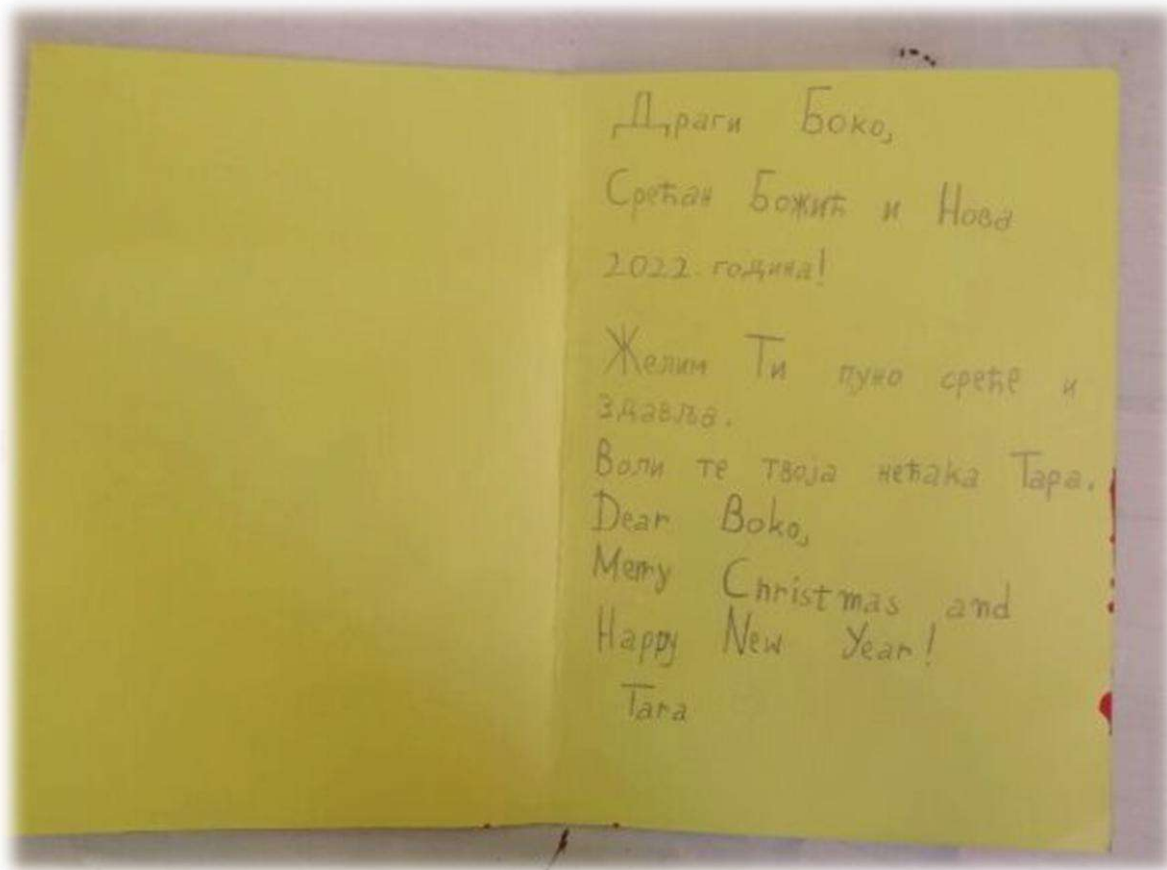 Драги Боко,
Срећан Божић и Нова
2022. година!
Желим Ти пуно среће и
здавља.
Воли те твоја нећака Тара.
Dear Boko,
Merry Christmas and
Happy New Year!
Tara